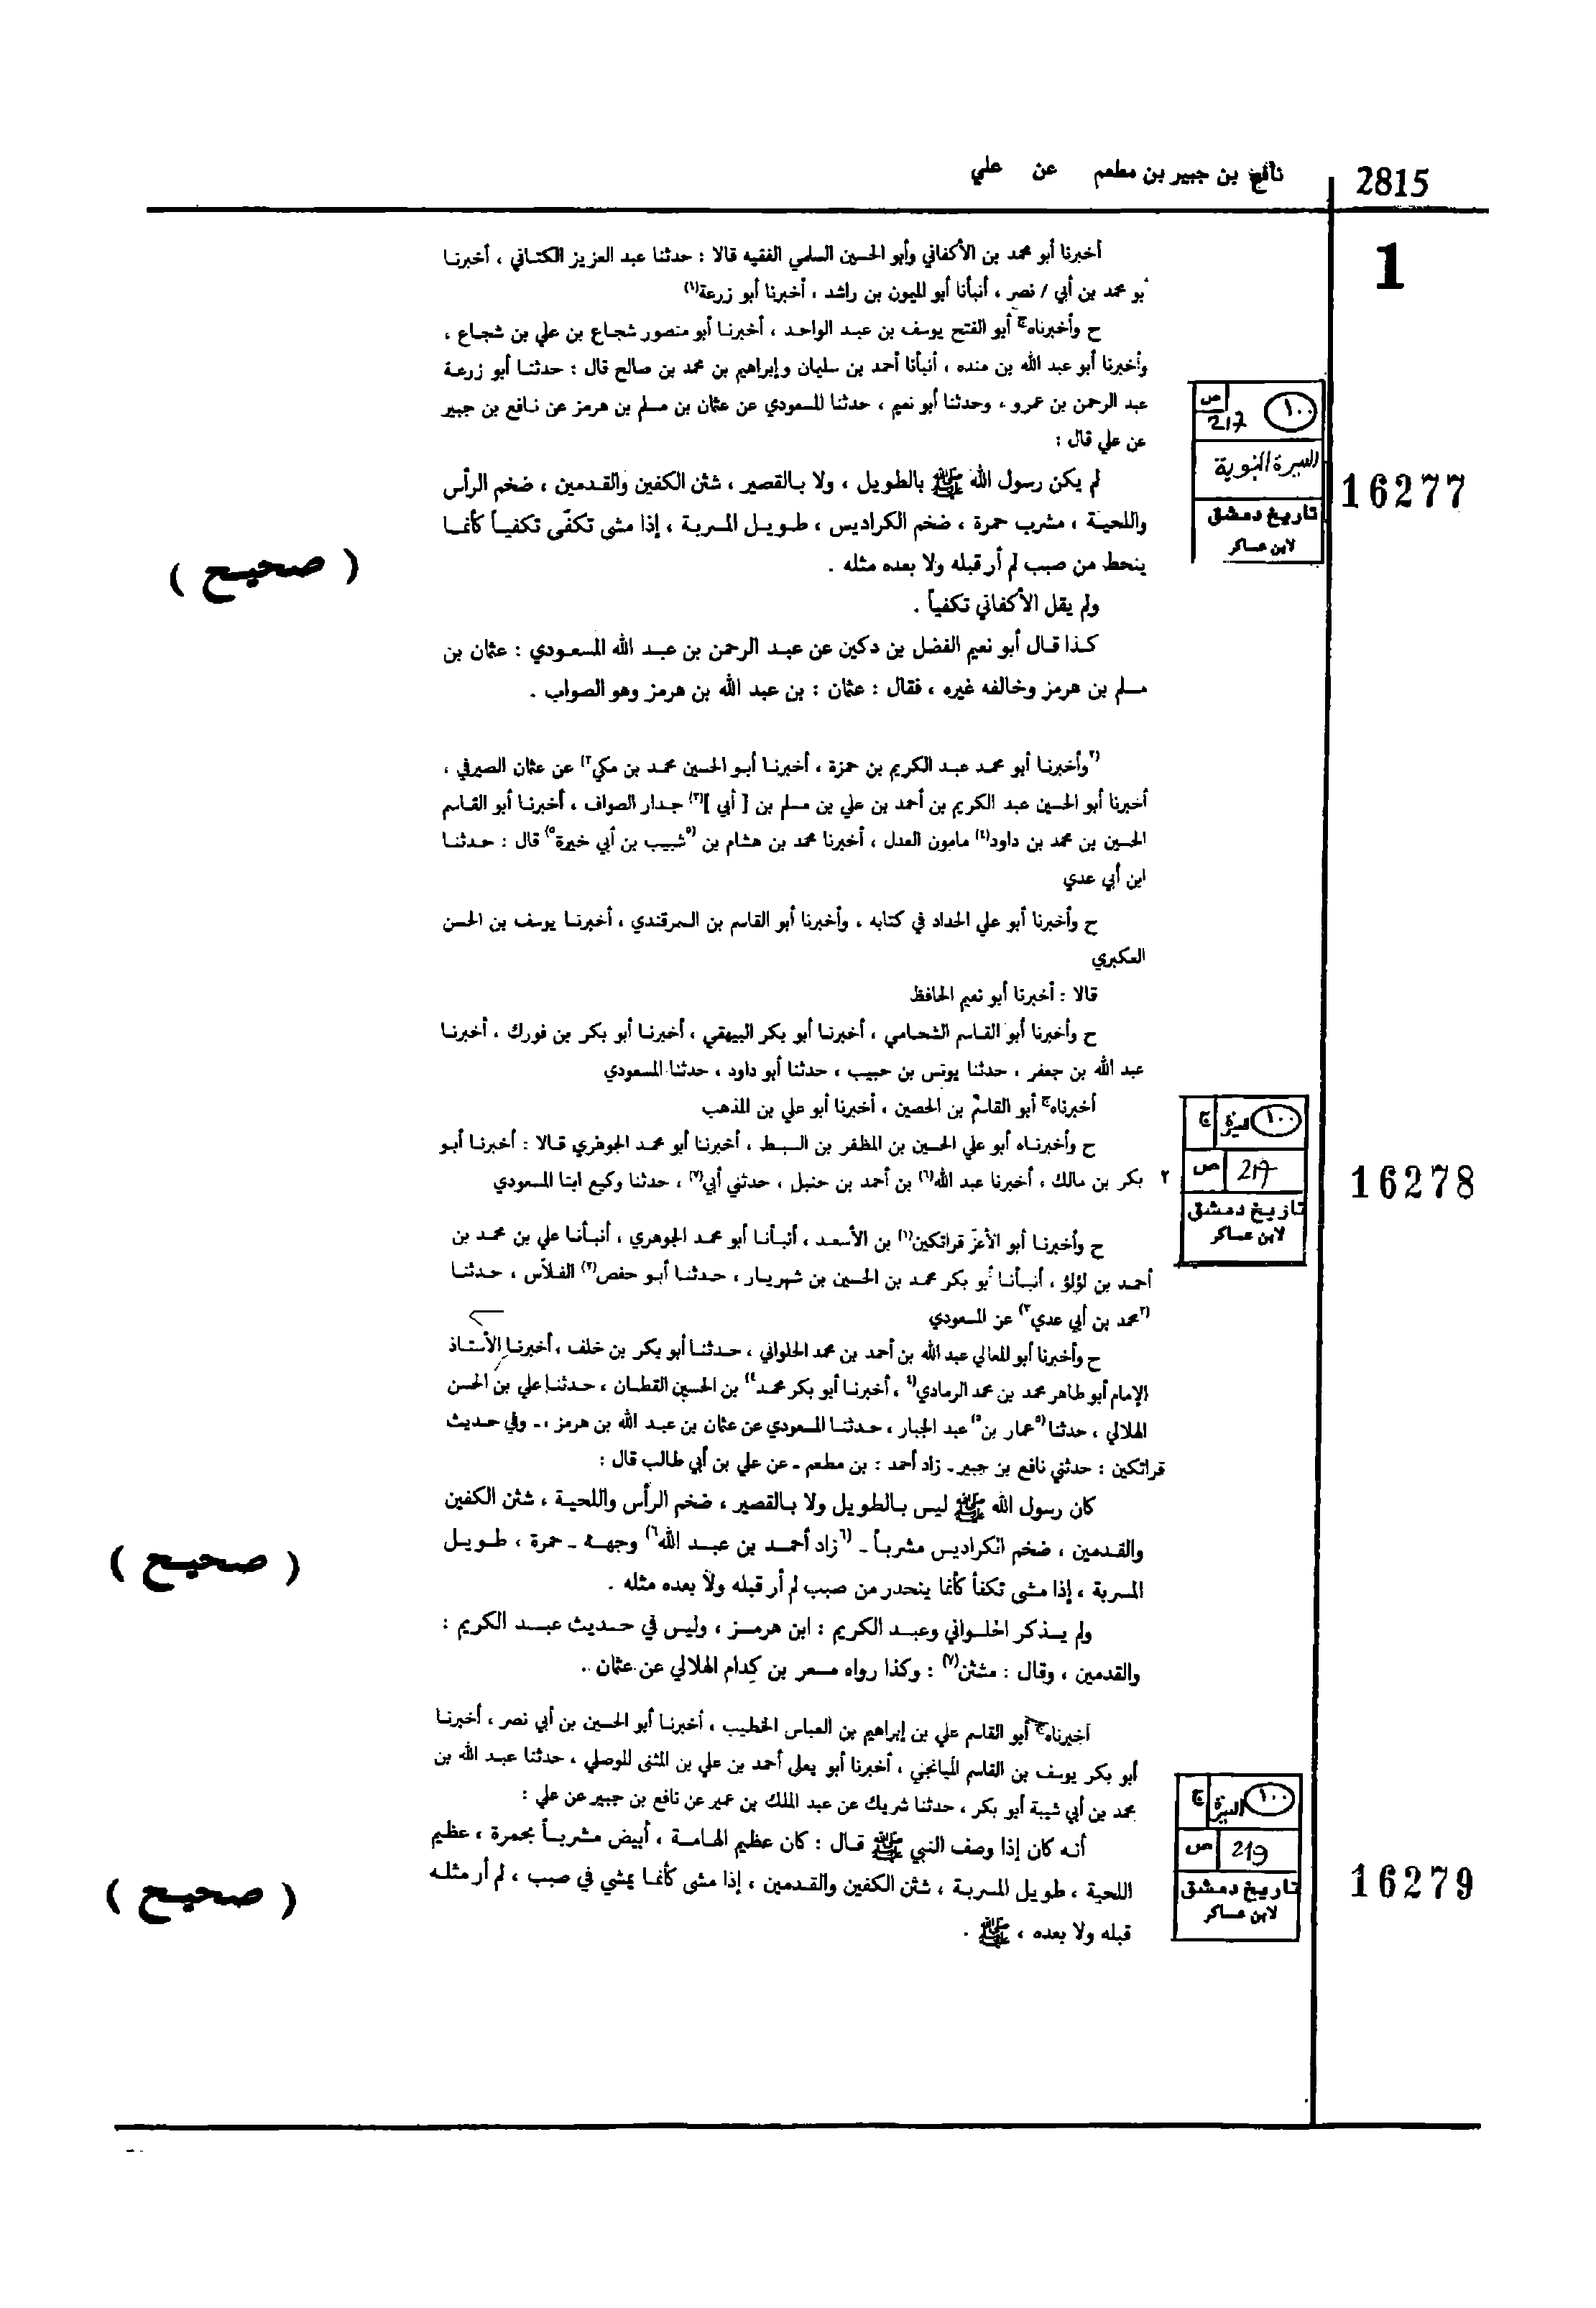 2815
نافع بن جبير بن مطعم عن علي
1
أخبرنا أبو محمد بن الأكفاني وأبو الحسين السلمي الفقيه قالا : حدثنا عبد العزيز الكتاني ، أخبرنا
بو محمد بن أبي / نصر ، أنبأنا أبو الميون بن راشد ، أخبرنا أبو زرعة(١)
ح وأخبرناه ج أبو الفتح يوسف بن عبد الواحد ، أخبرنا أبو منصور شجاع بن علي بن شجاع ،
وأخبرنا أبو عبد الله بن منده ، أنبأنا أحمد بن سليان وإبراهيم بن محمد بن صالح قال : حدثنا أبو زرعة
عبد الرحمن بن عمرو ، وحدثنا أبو نعيم ، حدثنا المسعودي عن عثمان بن مسلم بن هرمز عن نافع بن جبير
عن علي قال :
١٠٠
ص
217
السيرة النبوية
تاريخ دمشق
لابن عساكر
16277
لم يكن رسول الله ﷺ بالطويل ، ولا بالقصير ، شثن الكفين والقدمين ، ضخم الرأس
واللحية ، مشرب حمرة ، ضخم الكراديس ، طويل المسربة ، إذا مشى تكفّى تكفياً كأنما
ينحط من صبب لم أر قبله ولا بعده مثله .
( صحيح )
ولم يقل الأكفاني تكفياً .
كذا قال أبو نعيم الفضل بن دكين عن عبد الرحمن بن عبد الله المسعودي : عثمان بن
مسلم بن هرمز وخالفه غيره ، فقال : عثمان : بن عبد الله بن هرمز وهو الصواب .
(٢وأخبرنا أبو محمد عبد الكريم بن حمزة ، أخبرنا أبو الحسين محمد بن مكي٢) عن عثمان الصيرفي ،
أخبرنا أبو الحسين عبد الكريم بن أحمد بن علي بن مسلم بن [ أبي ](٣) جدار الصواف ، أخبرنا أبو القاسم
الحسين بن محمد بن داود(٤) مامون العدل ، أخبرنا محمد بن هشام بن (٥شبيب بن أبي خيرة٥) قال : حدثنا
ابن أبي عدي
ح وأخبرنا أبو علي الحداد في كتابه ، وأخبرنا أبو القاسم بن السمرقندي ، أخبرنا يوسف بن الحسن
العكبري
قالا : أخبرنا أبو نعيم الحافظ
ح وأخبرنا أبو القاسم الشحامي ، أخبرنا أبو بكر البيهقي ، أخبرنا أبو بكر بن فورك ، أخبرنا
عبد الله بن جعفر ، حدثنا يونس بن حبيب ، حدثنا أبو داود ، حدثنا المسعودي
أخبرناه ج أبو القاسم بن الحصين ، أخبرنا أبو علي بن المذهب
ح وأخبرناه أبو علي الحسين بن المظفر بن السبط ، أخبرنا أبو محمد الجوهري قالا : أخبرنا أبو
٢ بكر بن مالك ، أخبرنا عبد الله(٦) بن أحمد بن حنبل ، حدثني أبي(٧) ، حدثنا وكيع ابنا المسعودي
١٠٠ السيرة ج
217 ص
تاريخ دمشق
لابن عساكر
16278
ح وأخبرنا أبو الأعزّ قراتكين(١) بن الأسعد ، أنبأنا أبو محمد الجوهري ، أنبأنا علي بن محمد بن
أحمد بن لؤلؤ ، أنبأنا أبو بكر محمد بن الحسين بن شهريار ، حدثنا أبو حفص(٢) الفلاّس ، حدثنا
(٣محمد بن أبي عدي٣) عن المسعودي
ح وأخبرنا أبو المعالي عبد الله بن أحمد بن محمد الحلواني ، حدثنا أبو بكر بن خلف ، أخبرنا الأستاذ
الإمام أبو طاهر محمد بن محمد الرمادي(٤ ، أخبرنا أبو بكر محمد٤) بن الحسين القطان ، حدثنا علي بن الحسن
الهلالي ، حدثنا (٥عمار بن٥) عبد الجبار ، حدثنا المسعودي عن عثمان بن عبد الله بن هرمز ، ـ وفي حديث
قراتكين : حدثني نافع بن جبير ـ زاد أحمد : بن مطعم ـ عن علي بن أبي طالب قال :
كان رسول الله ﷺ ليس بالطويل ولا بالقصير ، ضخم الرأس واللحية ، شثن الكفين
والقدمين ، ضخم الكراديس مشرباً ـ (٦زاد أحمد بن عبد الله٦) وجهه ـ حمرة ، طويل
المسربة ، إذا مشى تكفأ كأنما ينحدر من صبب لم أر قبله ولا بعده مثله .
( صحيح )
ولم يذكر الحلواني وعبد الكريم : ابن هرمز ، وليس في حديث عبد الكريم :
والقدمين ، وقال : مشثن(٧) : وكذا رواه مسعر بن كِدام الهلالي عن عثمان .
أخبرناه ج أبو القاسم علي بن إبراهيم بن العباس الخطيب ، أخبرنا أبو الحسين بن أبي نصر ، أخبرنا
أبو بكر يوسف بن القاسم الميانجي ، أخبرنا أبو يعلى أحمد بن علي بن المثنى الموصلي ، حدثنا عبد الله بن
محمد بن أبي شيبة أبو بكر ، حدثنا شريك عن عبد الملك بن عمير عن نافع بن جبير عن علي :
١٠٠ السيرة ج
219 ص
تاريخ دمشق
لابن عساكر
16279
أنه كان إذا وصف النبي ﷺ قال : كان عظيم الهامة ، أبيض مشرباً بحمرة ، عظيم
اللحية ، طويل المسربة ، شثن الكفين والقدمين ، إذا مشى كأنما يمشي في صبب ، لم أر مثله
قبله ولا بعده ، ﷺ .
( صحيح )